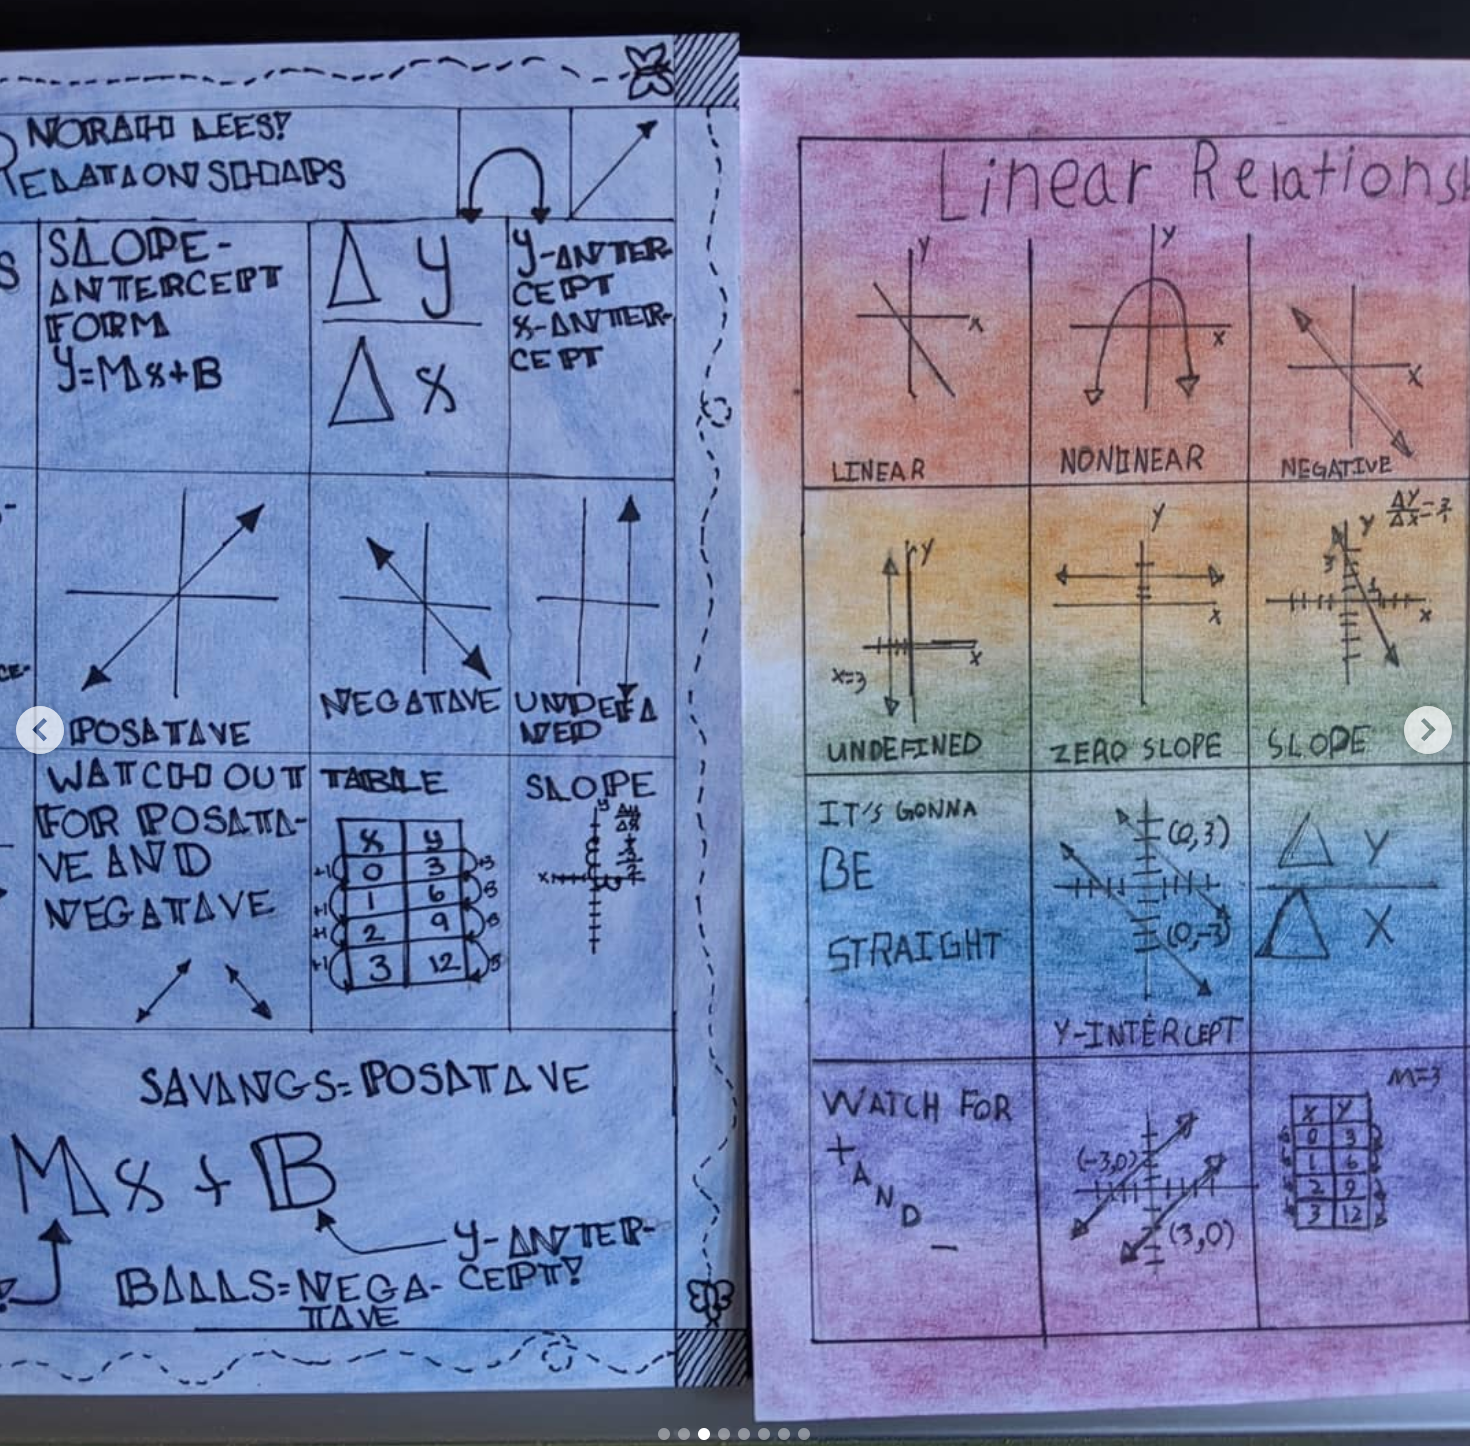 NORAH LEES!
RELATIONSHIPS
S
SLOPE-
INTERCEPT
FORM
y=Mx+B
Δ y
Δ x
y-INTER-
CEPT
x-INTER-
CEPT
POSATIVE
NEGATIVE
UNDEFI
NED
CE-
WATCH OUT
FOR POSATI-
VE AND
NEGATIVE
TABLE
x y
+1 0 3 +3
+1 1 6 +3
+1 2 9 +3
+1 3 12 +3
SLOPE
y
x
SAVINGS=POSATIVE
Mx+B
y-INTER-
CEPT!
BILLS=NEGA-
TIVE
Linear Relations
y
x
LINEAR
y
x
NONLINEAR
x
NEGATIVE
y
x
x=3
UNDEFINED
y
x
ZERO SLOPE
ΔY
ΔX
y
3
x
SLOPE
IT'S GONNA
BE
STRAIGHT
(0,3)
(0,-3)
Y-INTERCEPT
Δ Y
Δ X
WATCH FOR
+
AND
-
(-3,0)
(3,0)
M=3
X Y
0 3
1 6
2 9
3 12